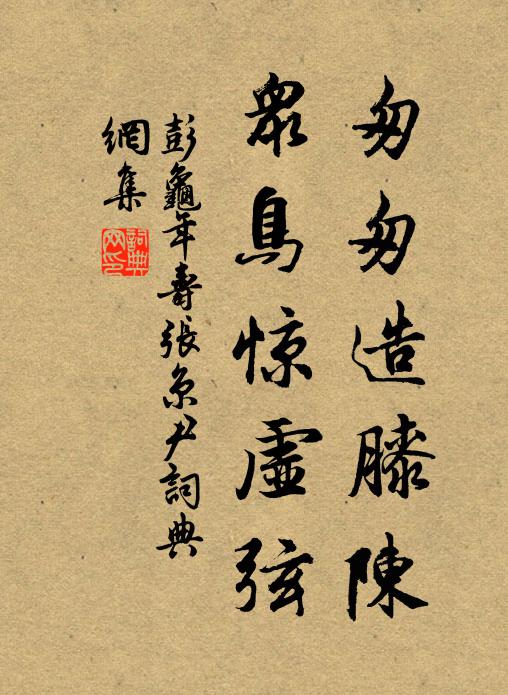 匆匆造膝陳
眾鳥惊虛弦
彭龜年壽張京尹詞典
網集
詞典
網印